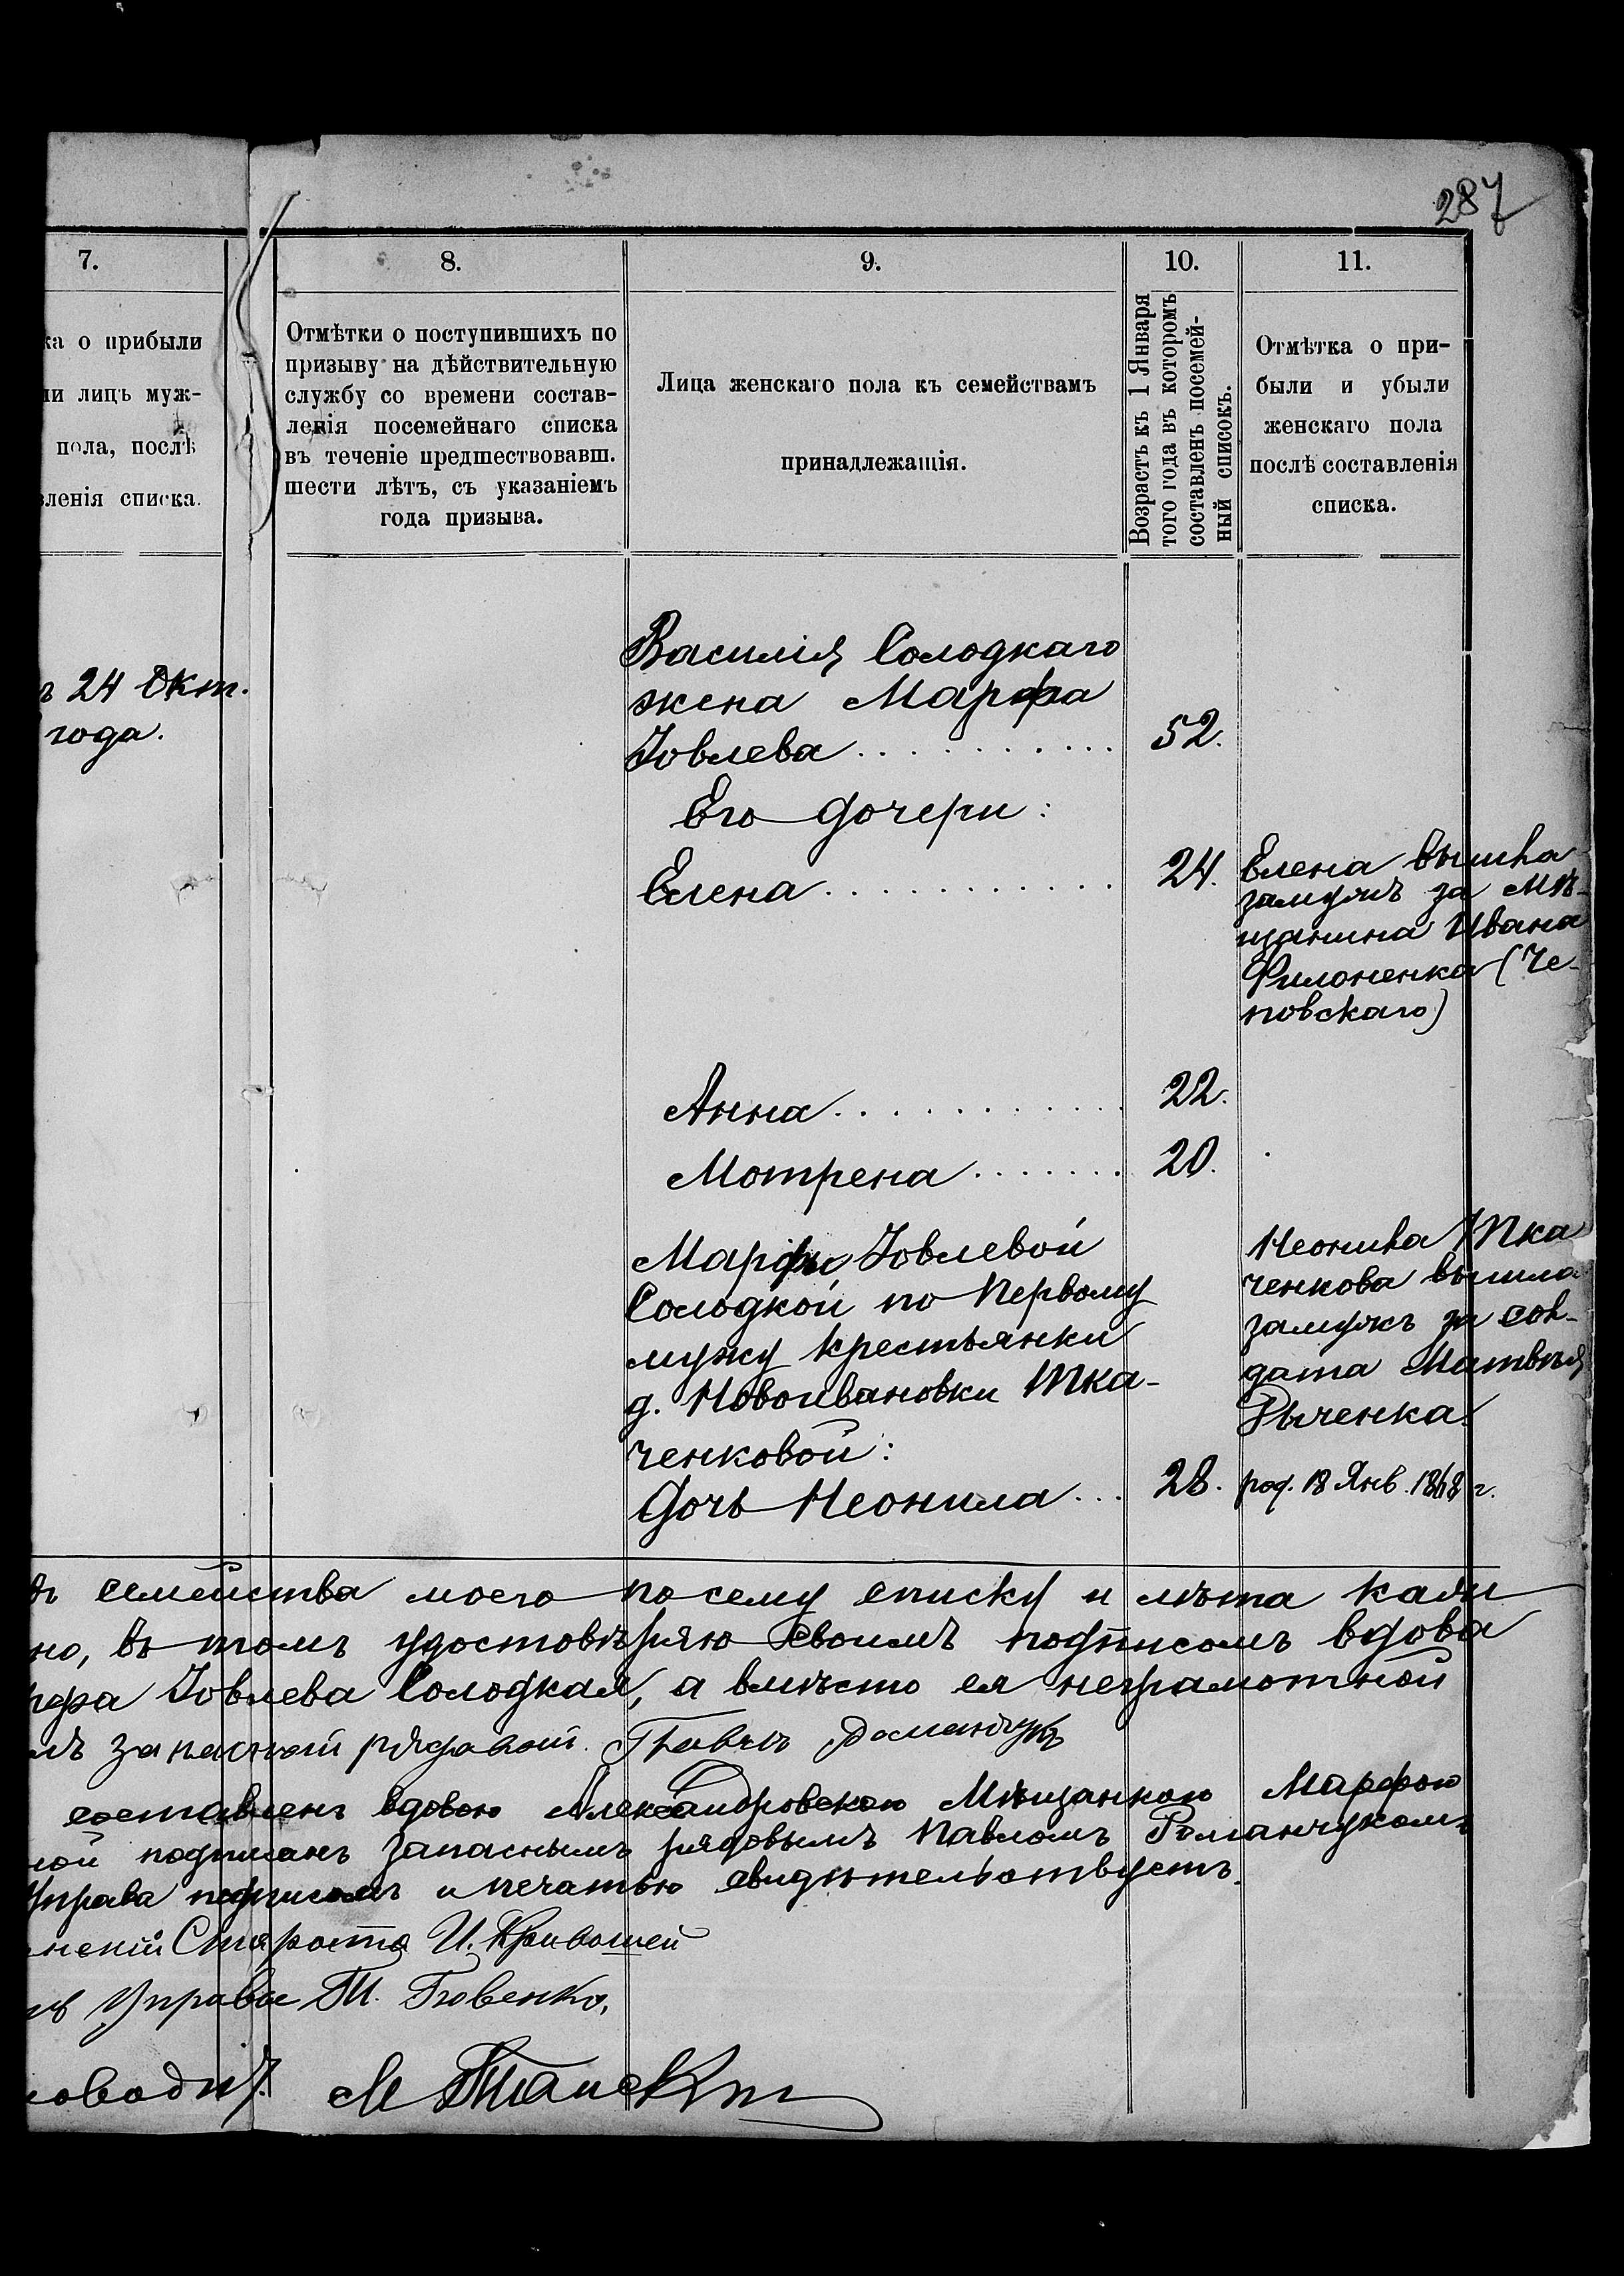 287
7.
8.
9.
10.
11.
ка о прибыли
ли лицъ муж-
пола, послѣ
вленія списка.
Отмѣтки о поступившихъ по
призыву на дѣйствительную
службу со времени состав-
ленія посемейнаго списка
въ теченіе предшествовавш.
шести лѣтъ, съ указаніемъ
года призыва.
Лица женскаго пола къ семействамъ
принадлежащія.
Возрастъ къ 1 Января
того года въ которомъ
составленъ посемей-
ный списокъ.
Отмѣтка о при-
были и убыли
женскаго пола
послѣ составленія
списка.
24 Окт.
года.
Василія Солодкаго
жена Марфа
Іовлева . . . . . . . . . . 52.
Его дочери:
Елена . . . . . . . . . . . 24.
Елена вышла
замужъ за Мѣ-
щанина Ивана
Филоненка (Че-
повскаго)
Анна . . . . . . . . . . . 22.
Мотрена . . . . . . . 20.
Марфы Іовлевой
Солодкой по первому
мужу крестьянки
д. Новоивановки Тка-
ченковой:
Дочь Неонила . . . 28.
Неонила Тка
ченкова вышла
замужъ за сол-
дата Матвѣя
Рыченка.
род. 18 Янв. 1868 г.
семейства моего по сему списку и лѣта
но, въ томъ удостовѣряю своимъ подписомъ вдова
рфа Іовлева Солодкая, а вмѣсто ея неграмотной
запасной рядовой Павелъ Романчукъ
составленъ вдовою Александровскою Мѣщанкою Марфою
ной подписанъ запаснымъ рядовымъ Павломъ Романчукомъ
Управа подписомъ и печатью свидѣтельствуетъ.
нскій Староста И. Кривошей
Управы
оводит.